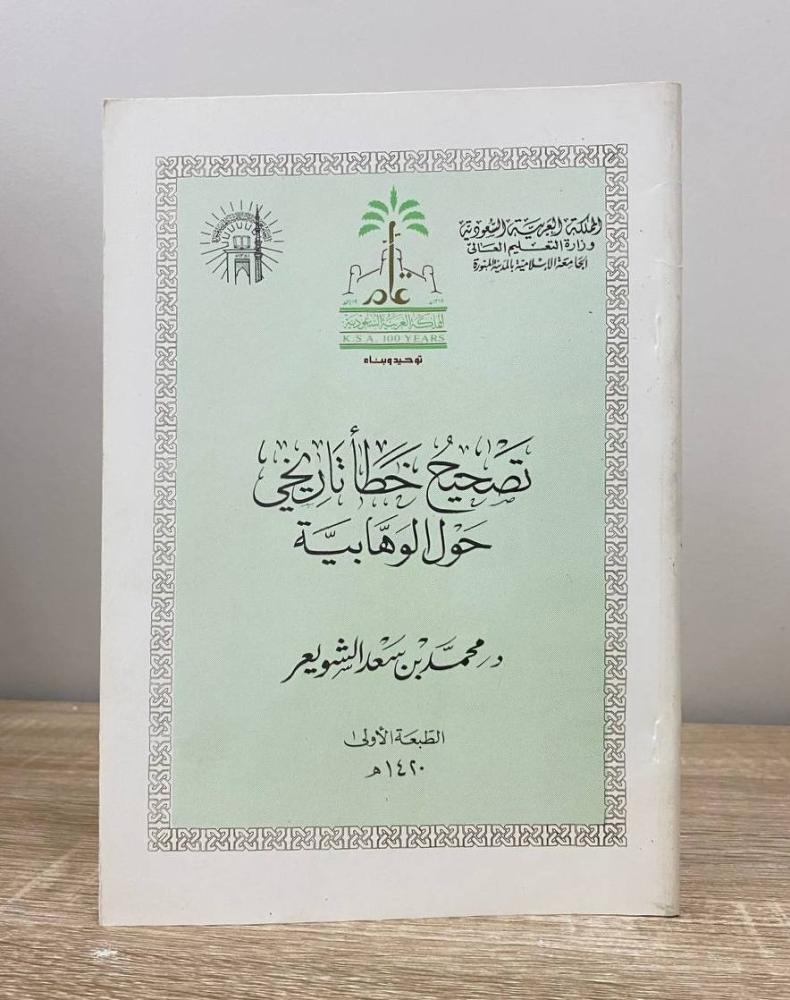 المملكة العربية السعودية
وزارة التعليم العالي
الجامعة الإسلامية بالمدينة المنورة
عام
المملكة العربية السعودية
K.S.A. 100 YEARS
توحيد وبناء
تَصْحيحُ خَطَأ تَارِيخي
حَوْل الوَهَّابيَّة
د. محمَّد بْن سَعد الشويعر
الطبعة الأولى
١٤٢٠ هـ